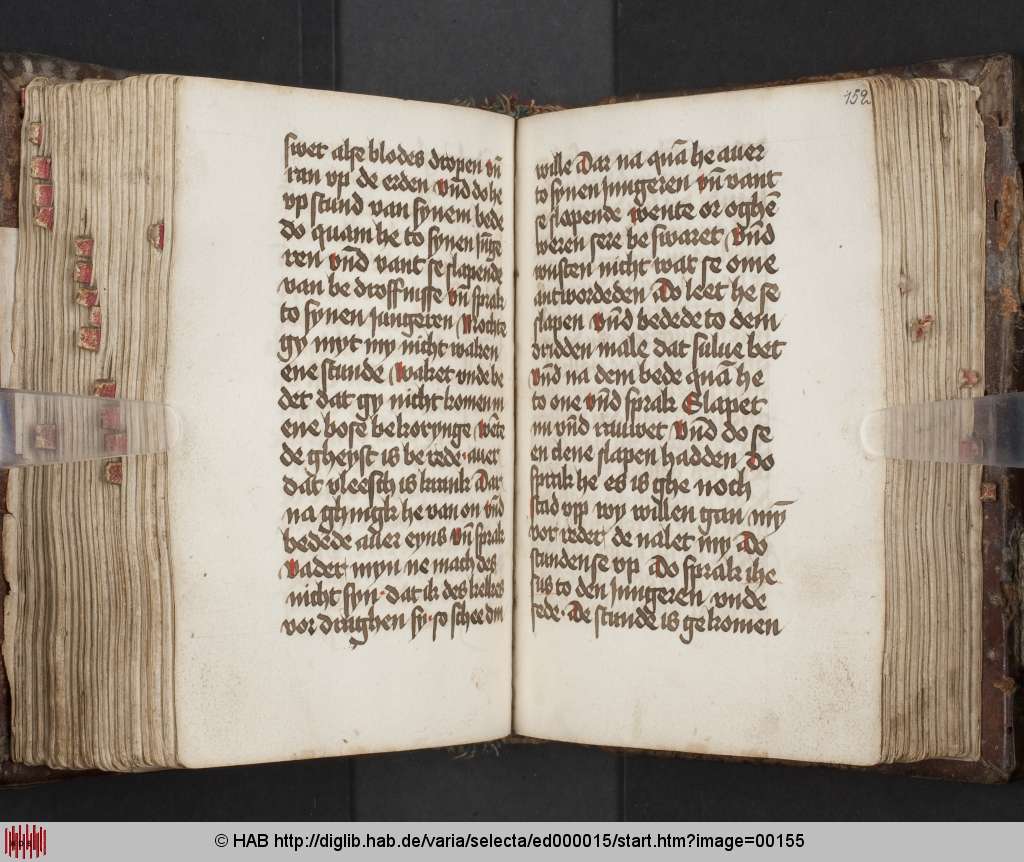 swet alse blodes dropen vñ
ran vp de erden Vnd do he
vp stund van synem bede
do quam he to synen Junge
ren vnd vant se slapende
van be droffnisse vñ sprak
to synen Jungeren Mochte
gy myt my nicht waken
ene stunde Waket vnde be
det dat gy nicht komen in
ene bose bekorynge Wēte
de gheyst is be rede auer
dat vleesch is krank Dar
na ghingk he van on vnd
bedede ander eyns vñ sprak
Vader myn ne mach des
nicht syn dat ik des kelkes
vor draghen sy so schee din
152
wille Dar na quā he auer
to synen Jungeren vñ vant
se slapende wente or oghē
weren sere be swaret Vnd
wusten nicht wat se ome
antwordeden Do leet he se
slapen vnd bedede to dem
dridden male dat sulue bet
Vnd na dem bede quā he
to one vnd sprak Slapet
nu vnd rauwet Vnd do se
en clene slapen hadden Do
sprak he es is ghe noch
stad vp wy willen gan mȳ
vor reder de nalet my Do
stundense vp Do sprak ihe
sus to den Jungeren vnde
sede De stunde is ge komen
© HAB http://diglib.hab.de/varia/selecta/ed000015/start.htm?image=00155